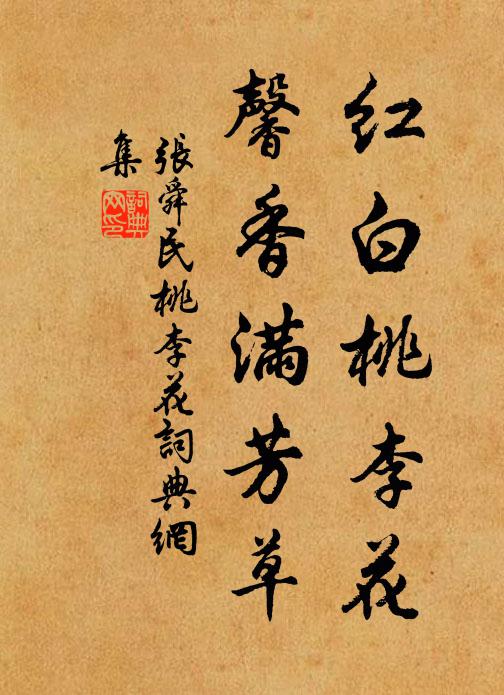 红白桃李花
馨香滿芳草
張舜民桃李花詞典網
集
詞典
网印